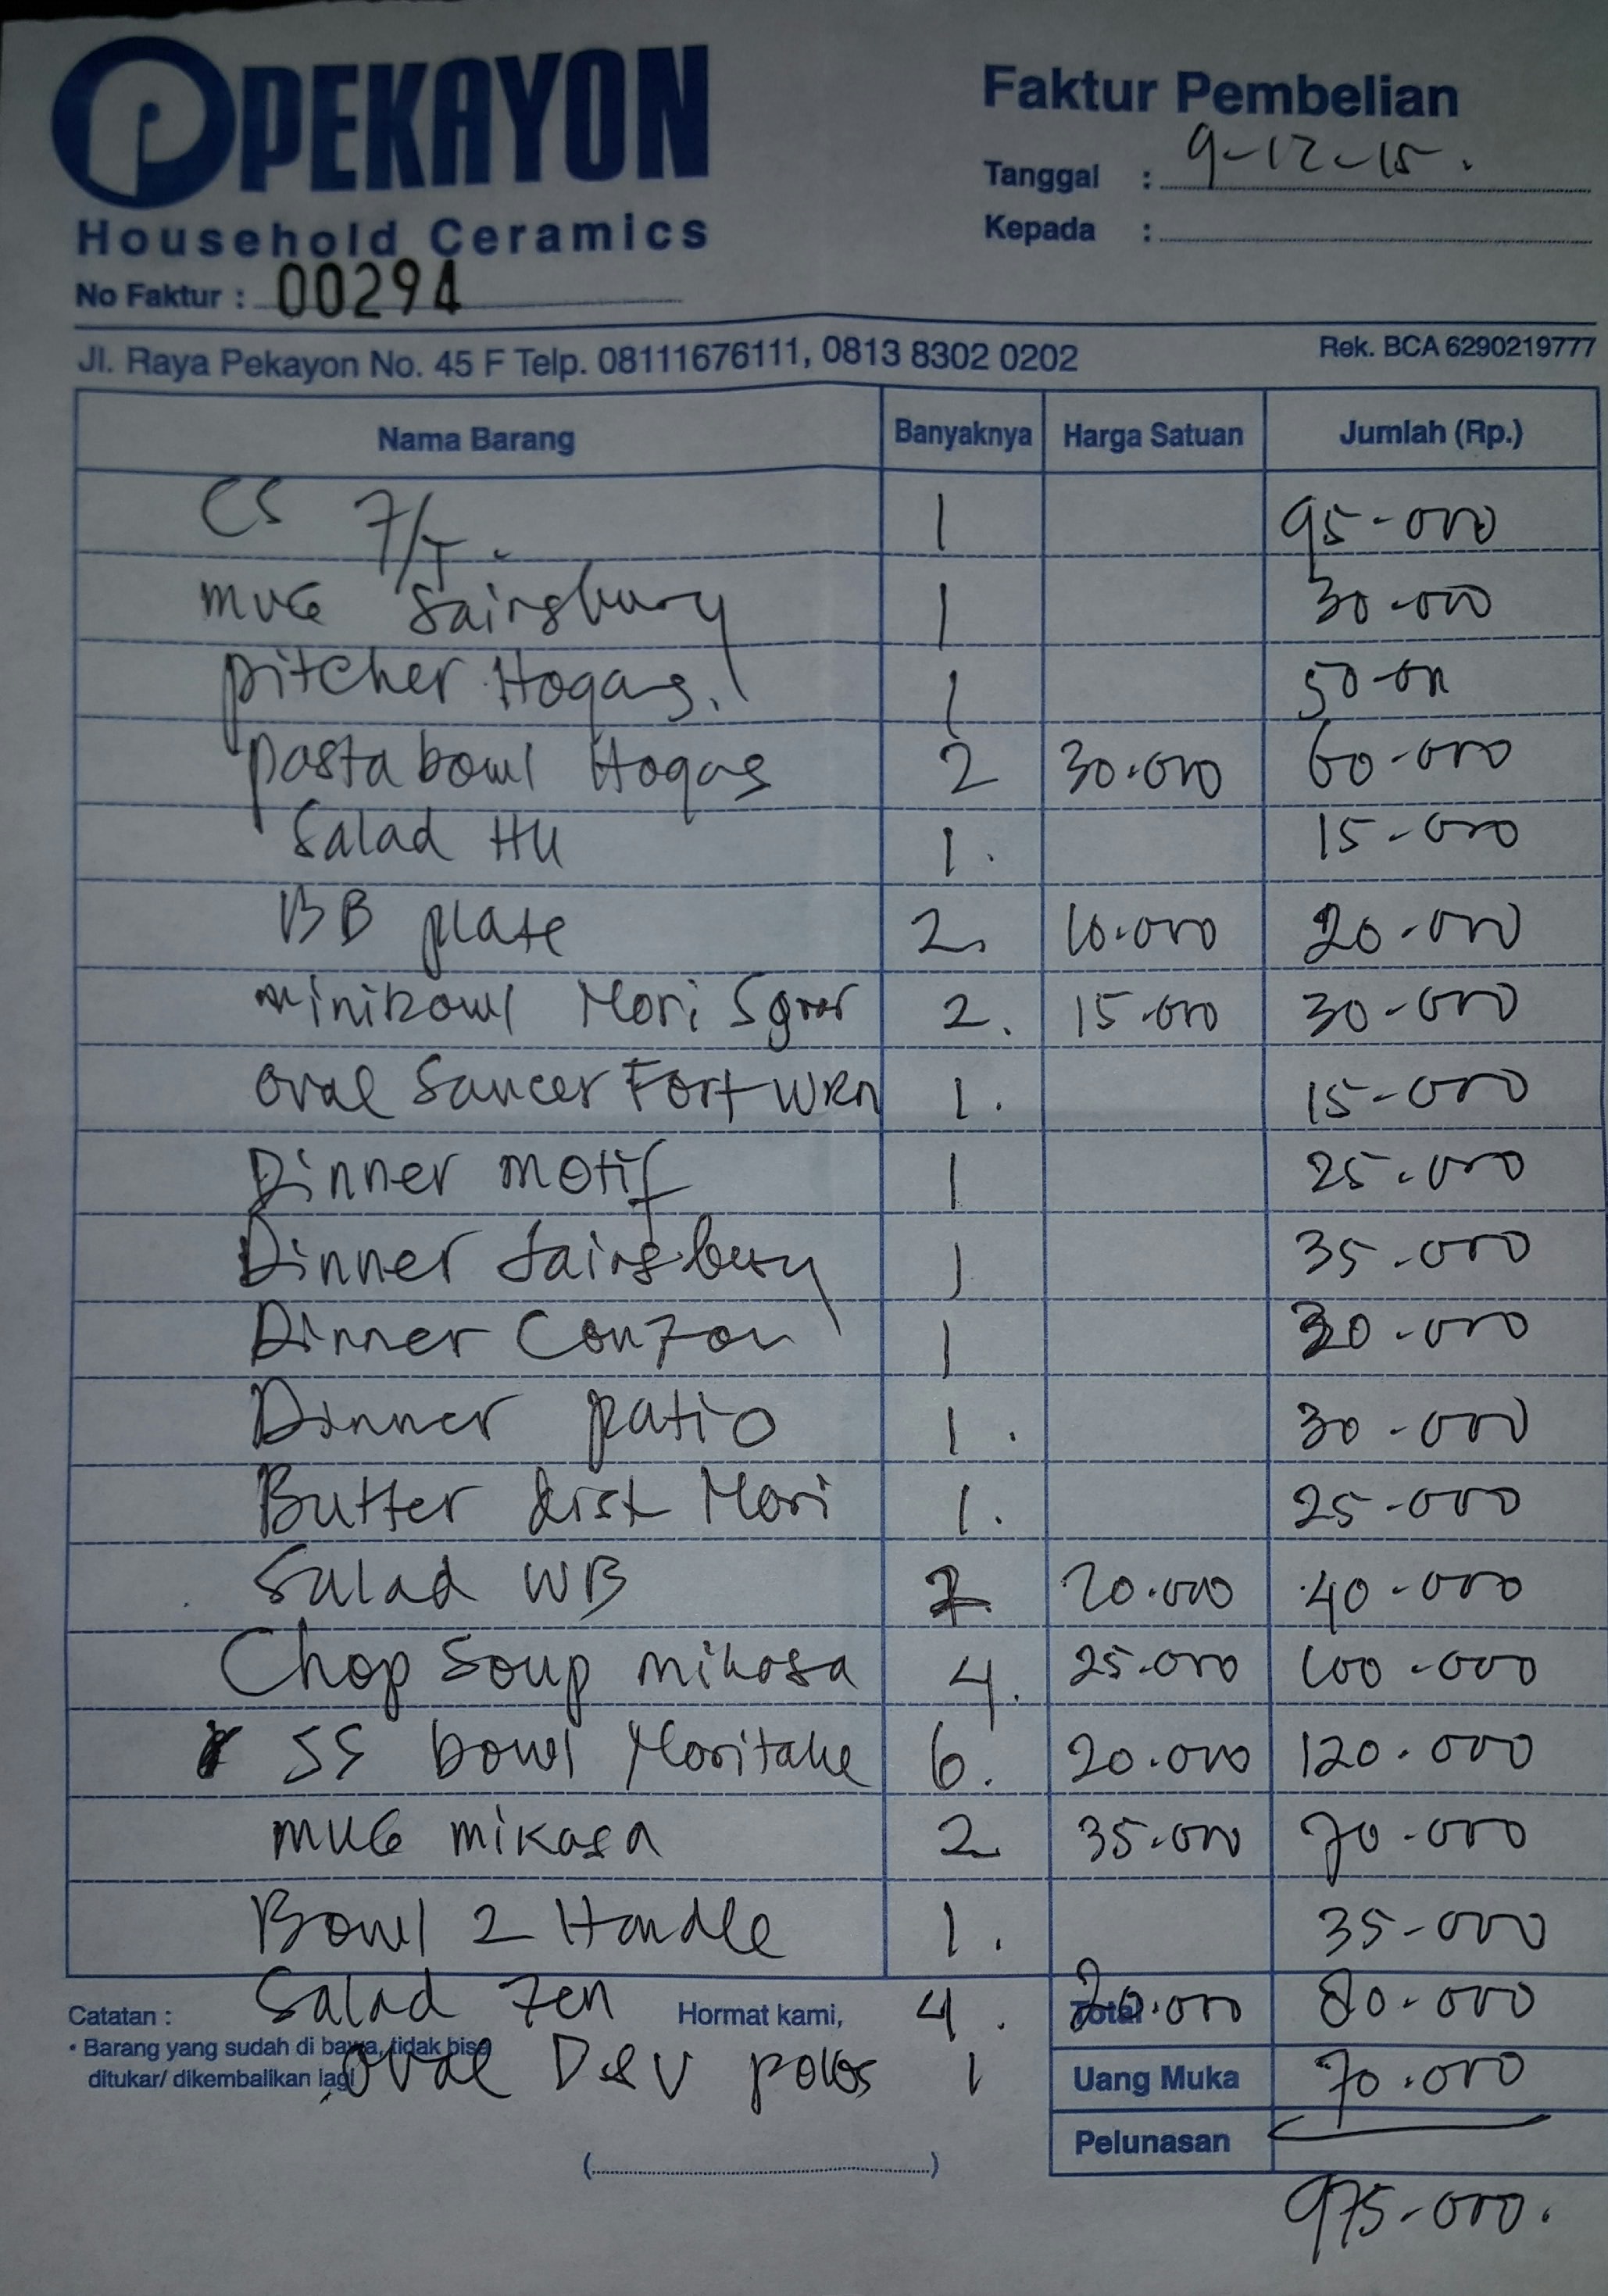 PEKAYON
Household Ceramics
No Faktur : 00294
Faktur Pembelian
Tanggal : 9-12-15.
Kepada :
Jl. Raya Pekayon No. 45 F Telp. 08111676111, 0813 8302 0202
Rek. BCA 6290219777
Nama Barang Banyaknya Harga Satuan Jumlah (Rp.)
CS 7/T. 1 95-000
MUG Sainsbury 1 30-000
pitcher Hogans. 1 50-000
pasta bowl Hogas 2 30.000 60-000
Salad HU 1. 15-000
BB plate 2. 10.000 20-000
minibowl Nori 2. 15-000 30-000
oval Saucer Fort WRN 1. 15-000
Dinner motif 1 25-000
Dinner Sainsbury 1 35-000
Dinner Conzon 1 30-000
Dinner patio 1. 30-000
Butter Nori 1. 25-000
Salad WB 2. 20.000 40-000
Chop Soup mikasa 4. 25-000 100-000
SS bowl Noritake 6. 20.000 120.000
MUG mikasa 2 35-000 70-000
Bowl 2 Handle 1. 35-000
Salad Zen 4. 20.000 80-000
oval D&V polos 1 70.000
Catatan :
• Barang yang sudah di bawa, tidak bisa
ditukar/ dikembalikan lagi
Hormat kami,
(        )
Total
Uang Muka
Pelunasan
975-000.